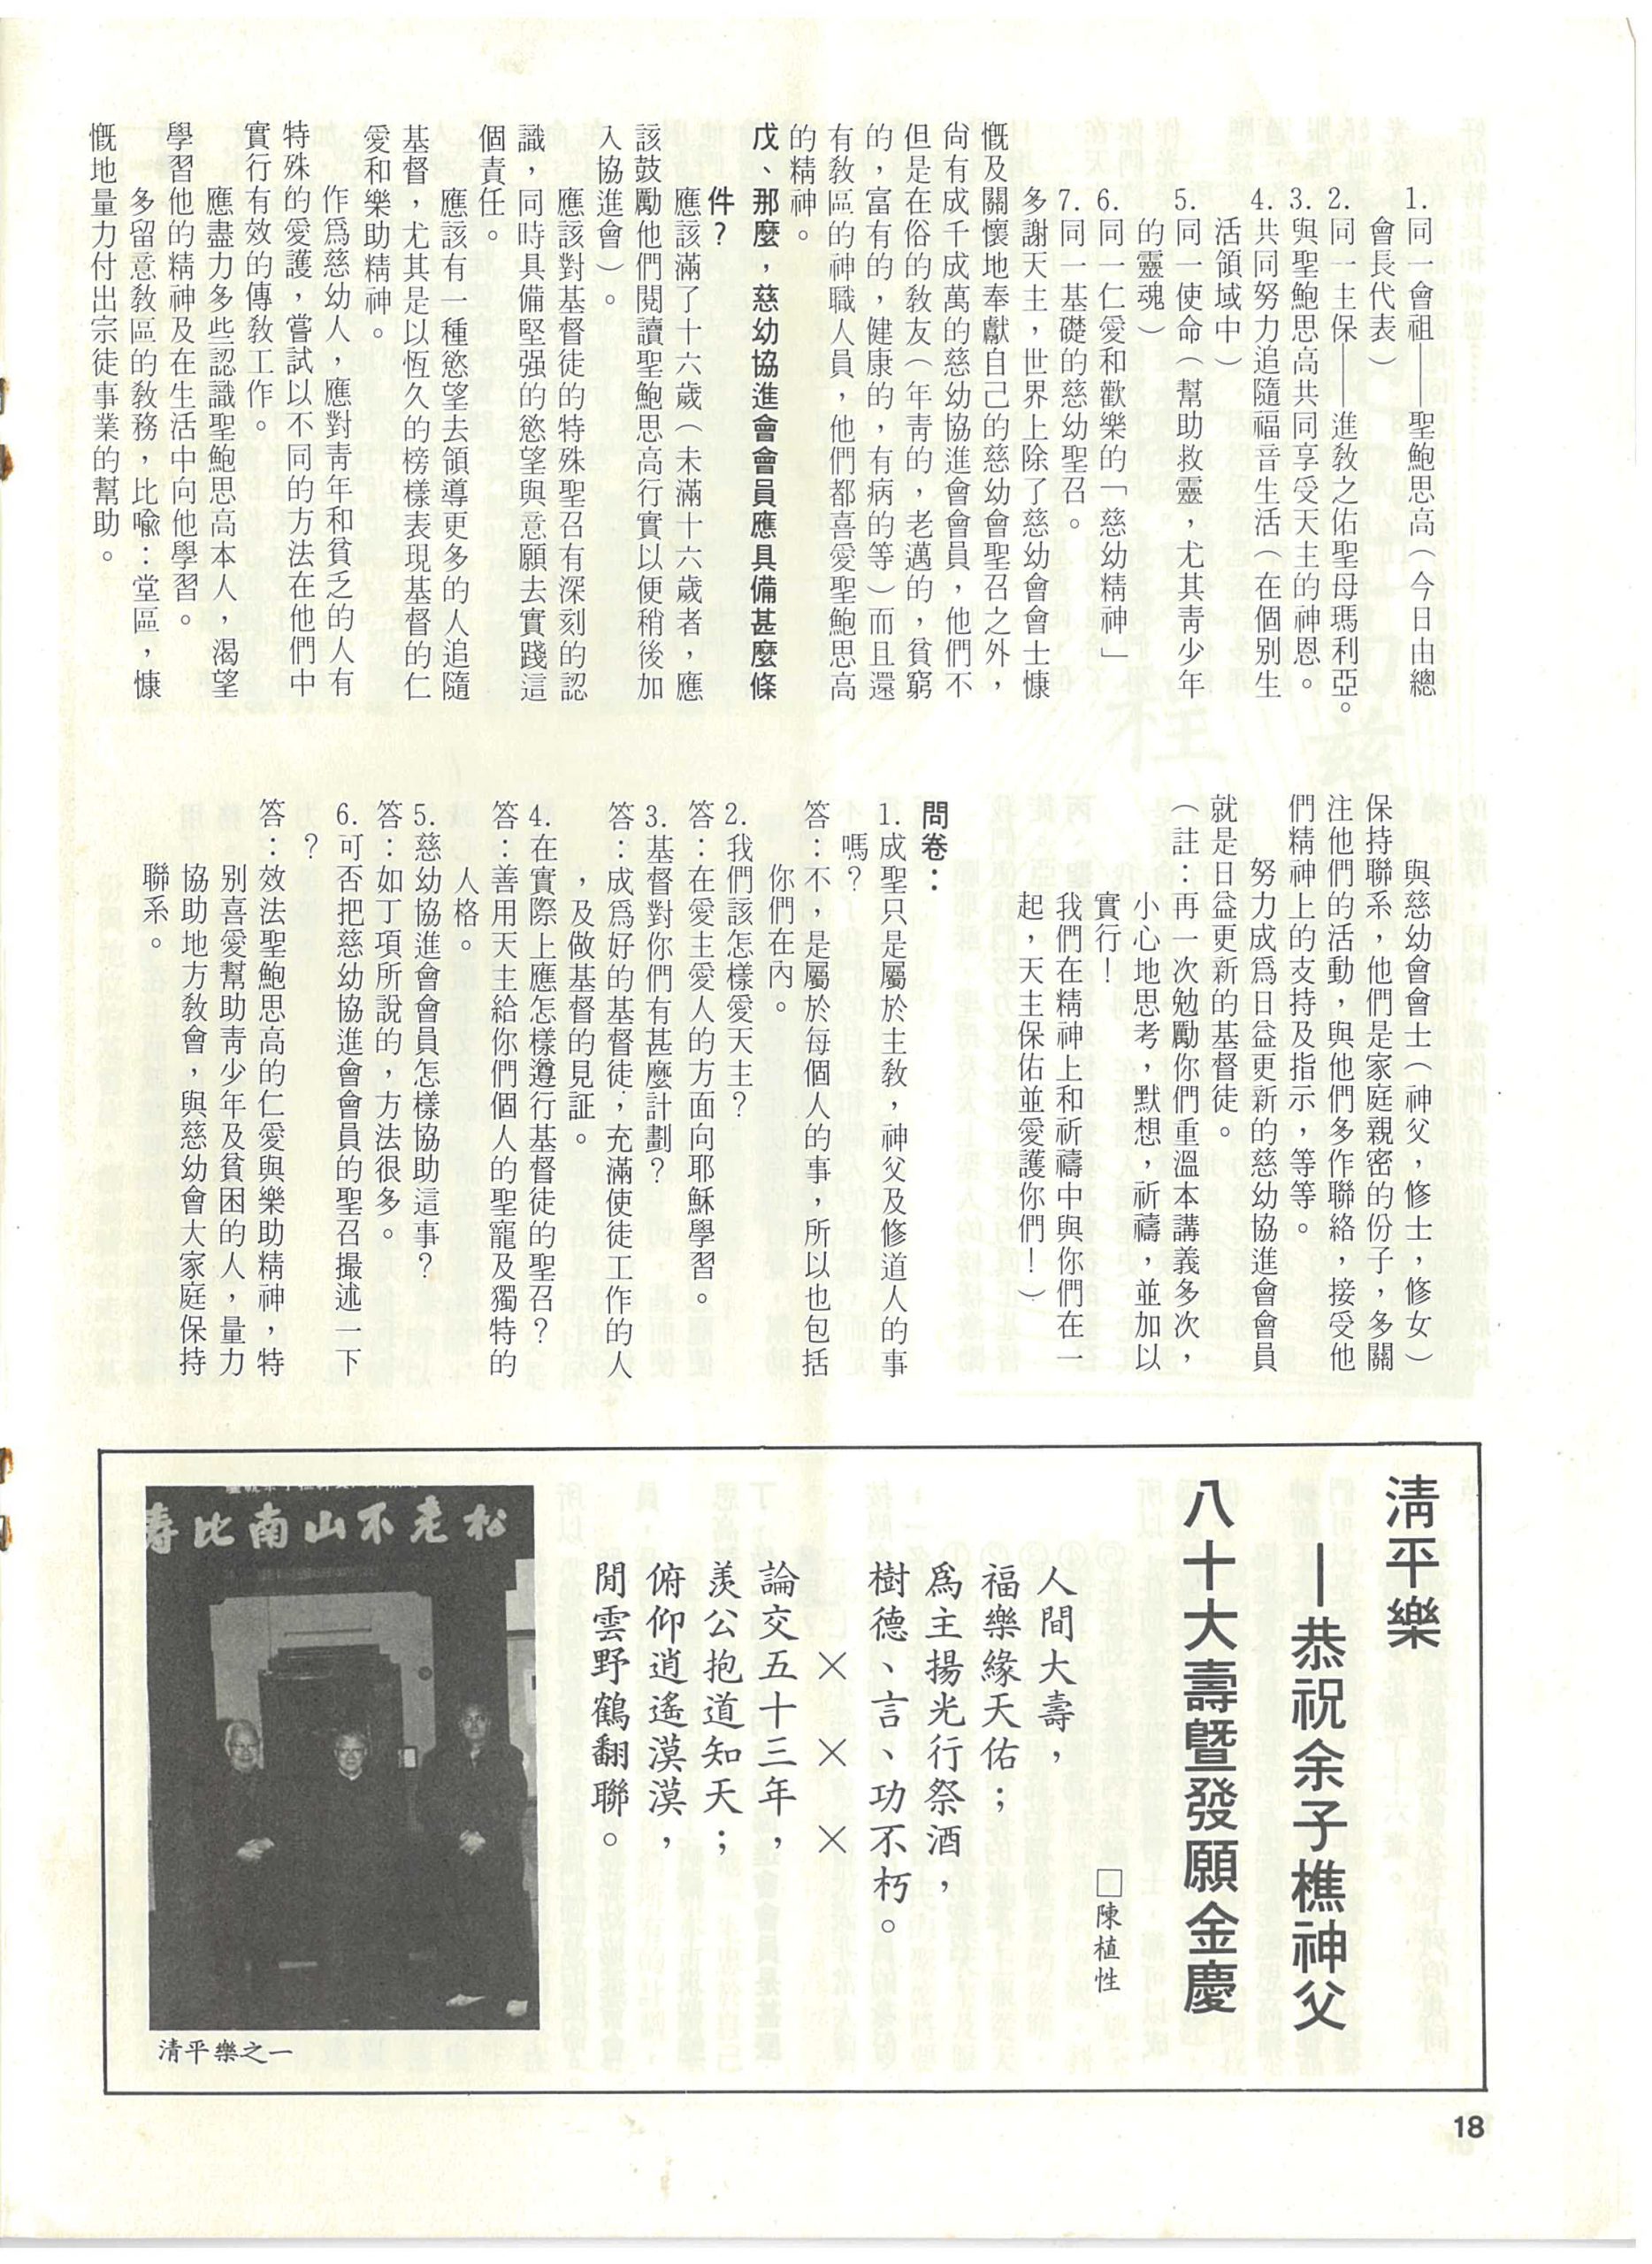 1.同一會祖——聖鮑思高(今日由總
會長代表)
2.同一主保——進敎之佑聖母瑪利亞。
3.與聖鮑思高共同享受天主的神恩。
4.共同努力追隨福音生活(在個別生
活領域中)
5.同一使命(幫助救靈,尤其靑少年
的靈魂)
6.同一仁愛和歡樂的「慈幼精神」
7.同一基礎的慈幼聖召。
多謝天主,世界上除了慈幼會會士慷
慨及關懷地奉獻自己的慈幼會聖召之外,
尙有成千成萬的慈幼協進會會員,他們不
但是在俗的敎友(年靑的,老邁的,貧窮
的,富有的,健康的,有病的等)而且還
有敎區的神職人員,他們都喜愛聖鮑思高
的精神。
戊、那麼,慈幼協進會會員應具備甚麼條
件?
應該滿了十六歲(未滿十六歲者,應
該鼓勵他們閱讀聖鮑思高行實以便稍後加
入協進會)。
應該對基督徒的特殊聖召有深刻的認
識,同時具備堅强的慾望與意願去實踐這
個責任。
應該有一種慾望去領導更多的人追隨
基督,尤其是以恆久的榜樣表現基督的仁
愛和樂助精神。
作爲慈幼人,應對靑年和貧乏的人有
特殊的愛護,嘗試以不同的方法在他們中
實行有效的傳敎工作。
應盡力多些認識聖鮑思高本人,渴望
學習他的精神及在生活中向他學習。
多留意敎區的敎務,比喩:堂區,慷
慨地量力付出宗徒事業的幫助。
與慈幼會會士(神父,修士,修女)
保持聯系,他們是家庭親密的份子,多關
注他們的活動,與他們多作聯絡,接受他
們精神上的支持及指示,等等。
努力成爲日益更新的慈幼協進會會員
就是日益更新的基督徒。
(註:再一次勉勵你們重溫本講義多次,
小心地思考,默想,祈禱,並加以
實行!
我們在精神上和祈禱中與你們在一
起,天主保佑並愛護你們!)
問卷:
1.成聖只是屬於主敎,神父及修道人的事
嗎?
答:不,是屬於每個人的事,所以也包括
你們在內。
2.我們該怎樣愛天主?
答:在愛主愛人的方面向耶穌學習。
3.基督對你們有甚麼計劃?
答:成爲好的基督徒,充滿使徒工作的人
,及做基督的見証。
4.在實際上應怎樣遵行基督徒的聖召?
答:善用天主給你們個人的聖寵及獨特的
人格。
5.慈幼協進會會員怎樣協助這事?
答:如丁項所說的,方法很多。
6.可否把慈幼協進會會員的聖召撮述一下
?
答:效法聖鮑思高的仁愛與樂助精神,特
別喜愛幫助靑少年及貧困的人,量力
協助地方敎會,與慈幼會大家庭保持
聯系。
淸平樂
—恭祝余子樵神父
八十大壽曁發願金慶
□陳植性
人間大壽,
福樂緣天佑;
爲主揚光行祭酒,
樹德、言、功不朽。
× × ×
論交五十三年,
羨公抱道知天;
俯仰逍遙漠漠,
閒雲野鶴翻聯。
壽比南山不老松
清平樂之一
18